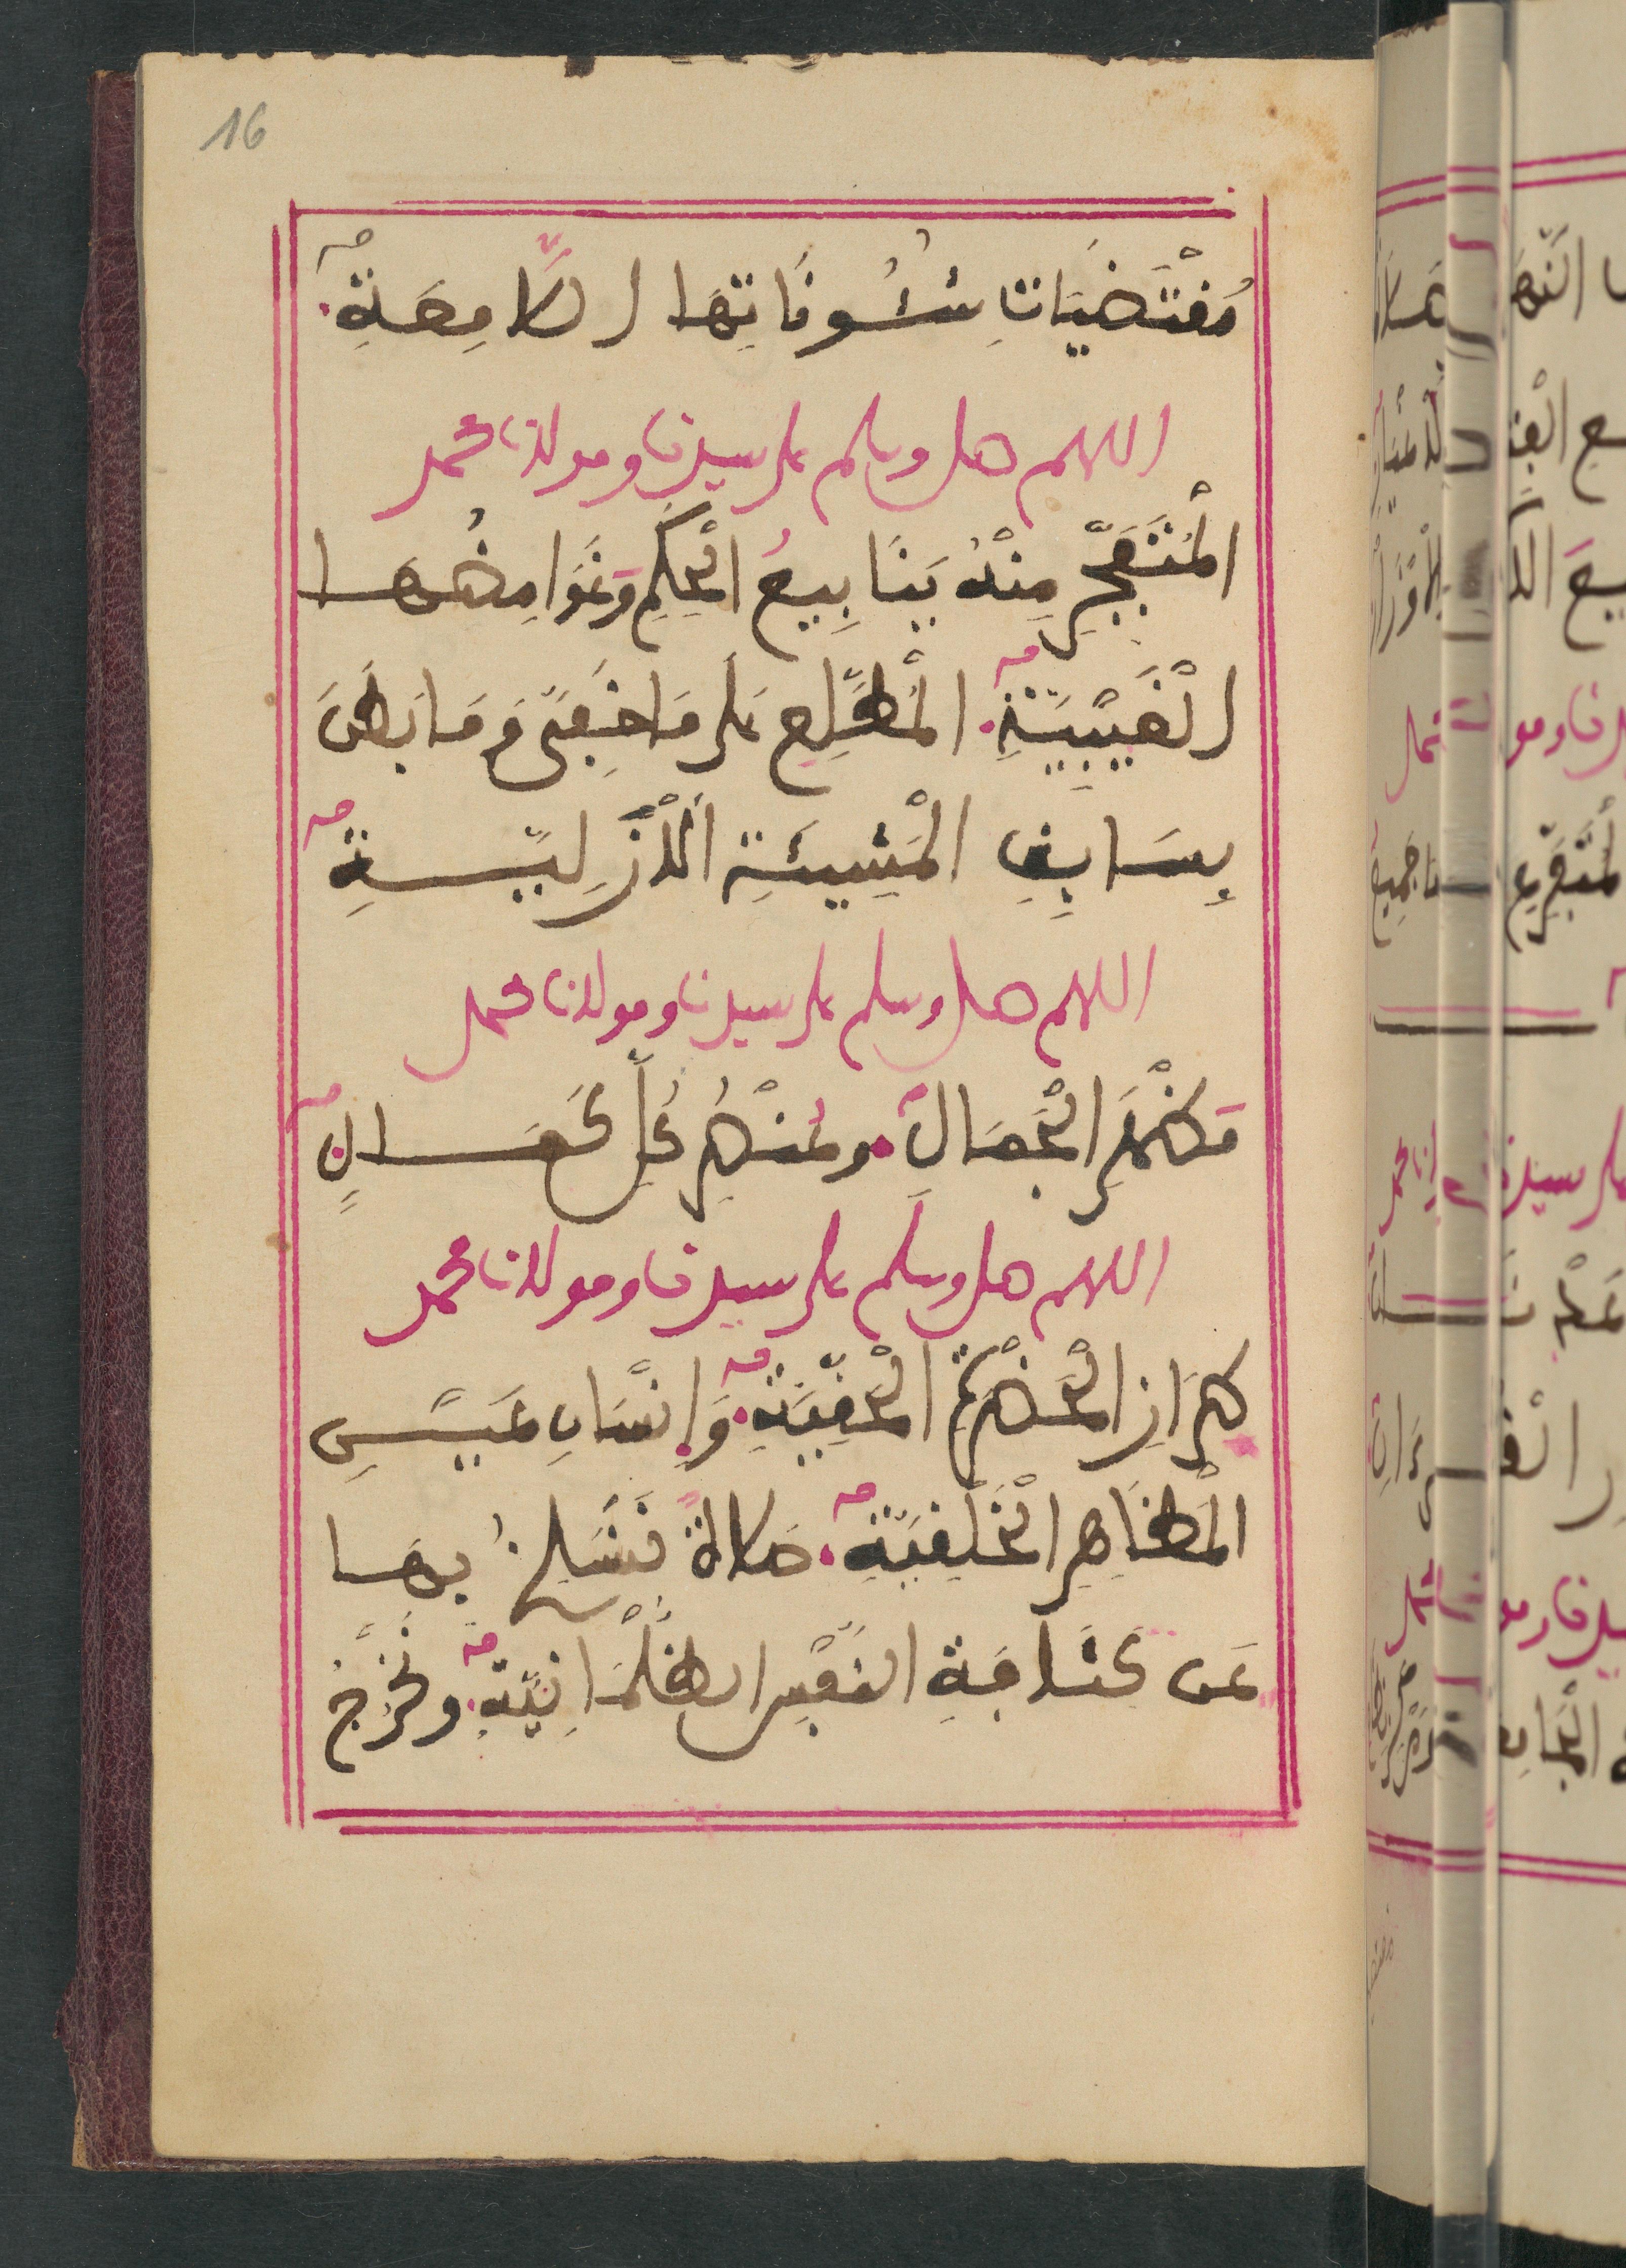 16
مُقْتَضَيَاتِ شُئُونَاتِهَا الَّامِعَةِ
اللهم صل وسلم على سيدنا ومولانا محمد
الْمُتَفَجِّرِ مِنْهُ يَنَابِيعُ الْحِكَمِ وَغَوَامِضُهَا
الْغَيْبِيَّةِ الْمُطَّلِعِ عَلَى مَا خَفِيَ وَمَا بَطَنَ
بِسَابِقِ الْمَشِيئَةِ الْأَزَلِيَّةِ
اللهم صل وسلم على سيدنا ومولانا محمد
مَظْهَرِ الْجَمَالِ وَمَنْهَرِ كُلِّ كَمَالٍ
اللهم صل وسلم على سيدنا ومولانا محمد
طِرَازِ الْحَضْرَةِ الْحَقِّيَّةِ وَإِنْسَانِ عَيْنِ
الْمَظَاهِرِ الْخَلْقِيَّةِ صَلَاةً نَنْسَلِخُ بِهَا
عَن كَثَافَةِ النَّفْسِ الظُّلْمَانِيَّةِ وَنَخْرُجُ